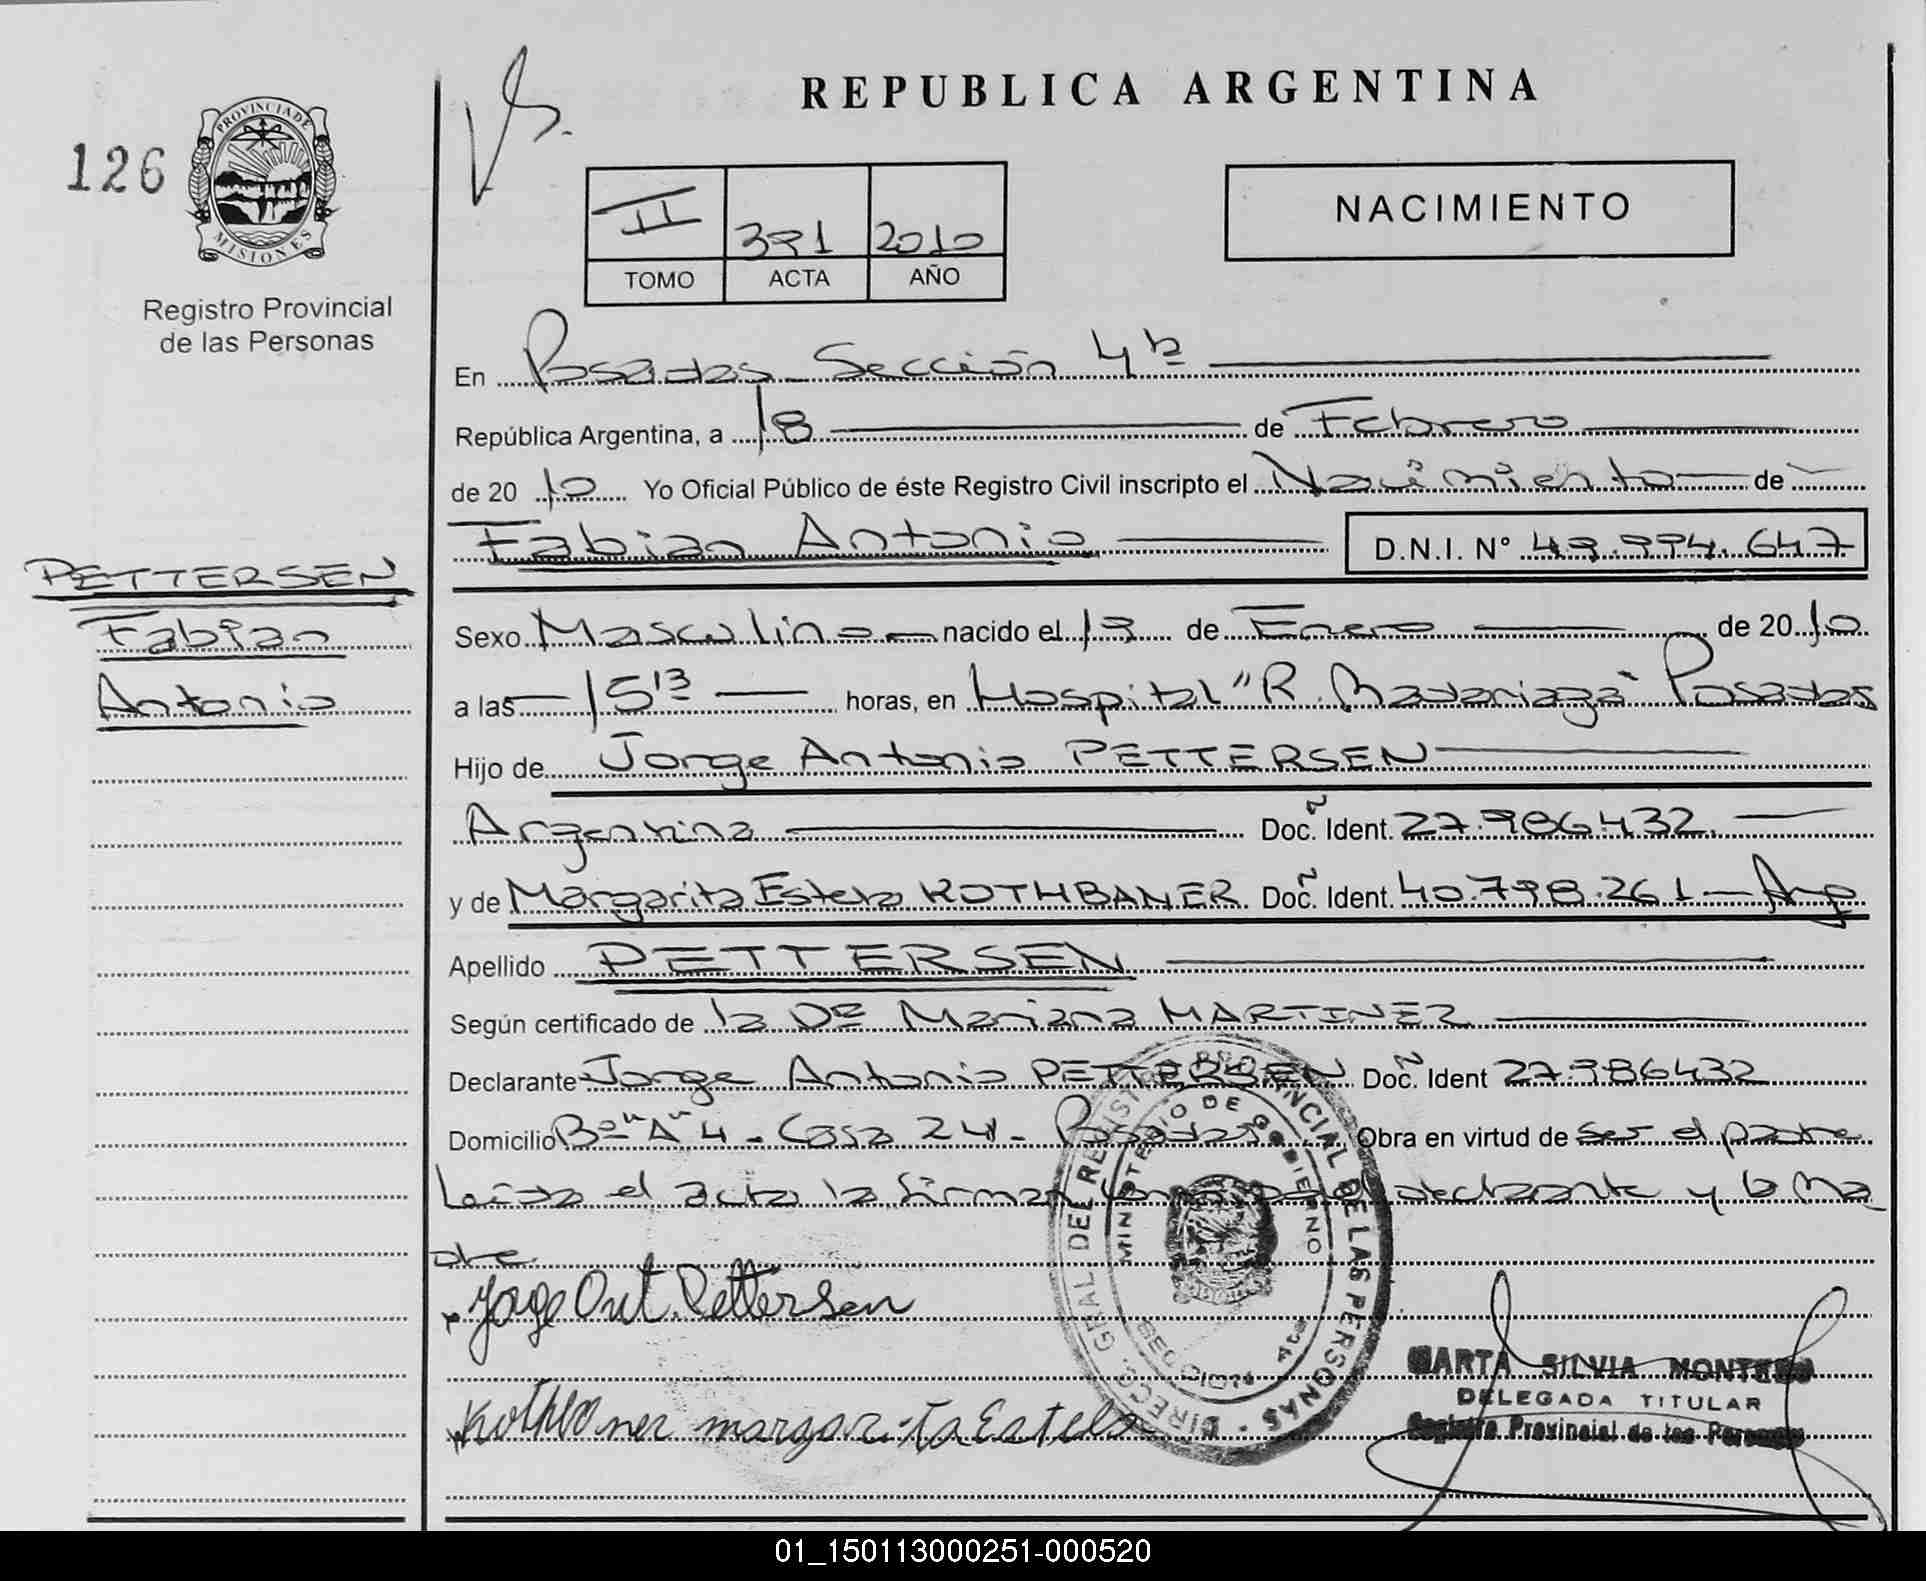 REPUBLICA ARGENTINA
126
PROVINCIA DE
MISIONES
Registro Provincial
de las Personas
II 391 2010
TOMO ACTA AÑO
NACIMIENTO
En Posadas Sección 4ta
República Argentina, a 18 de Febrero
de 2010 Yo Oficial Público de éste Registro Civil inscripto el Nacimiento de
Fabian Antonio D.N.I. Nº 49.994.647
PETTERSEN
Fabian
Antonio
Sexo Masculino nacido el 19 de Enero de 2010
a las 15 13 horas, en Hospital "R. Madariaga" Posadas
Hijo de Jorge Antonio PETTERSEN
Argentina Doc. Ident. 27.986.432
y de Margarita Estela ROTHBANER Doc. Ident. 40.798.261 Arg
Apellido PETTERSEN
Según certificado de la Dra Mariana MARTINEZ
Declarante Jorge Antonio PETTERSEN Doc. Ident 27.986432
Domicilio Bo "A" 4 - Casa 24 - Posadas Obra en virtud de ser el padre
Leida el acta la firman declarante y la ma
dre
Jorge Ant. Pettersen
Rothbaner margarita Estela
DIREC. GRAL DEL REGISTRO PROVINCIAL DE LAS PERSONAS
MINISTERIO DE GOBIERNO
SECCION 4ta
MARTA SILVIA MONTERO
DELEGADA TITULAR
Registro Provincial de las Personas
01_150113000251-000520